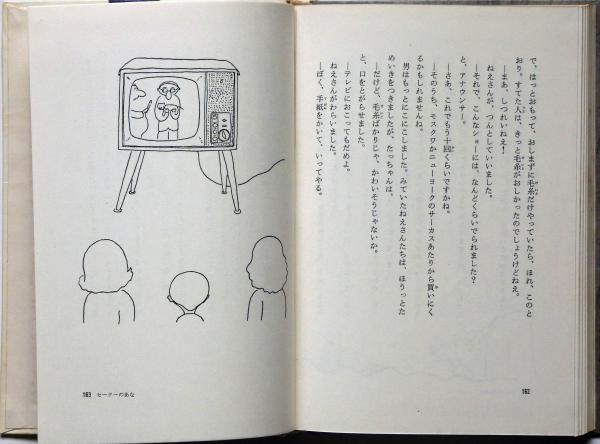 で、はっとおもって、おしまずに毛糸だけやっていたら、ほれ、このと
おり。すてた人は、きっと毛糸がおしかったのでしょうけどねえ。
―まあ、しつれいねえ!
ねえさんが、つんとしていいました。
―それで、こんなショーには、なんどくらいでられました?
と、アナウンサー。
―さあ、これでもう十回くらいですかね。
―そのうち、モスクワかニューヨークのサーカスあたりから買いにく
るかもしれませんね。
男はもっとにこにこしました。みていたねえさんたちは、ほうっとた
めいきをつきましたが、たっちゃんは、
―だけど、毛糸ばかりじゃ、かわいそうじゃないか。
と、口をとがらせました。
―テレビにおこってもだめよ。
ねえさんがわらいました。
―ぼく、手紙をかいて、いってやる。
162
163 セーターのあな